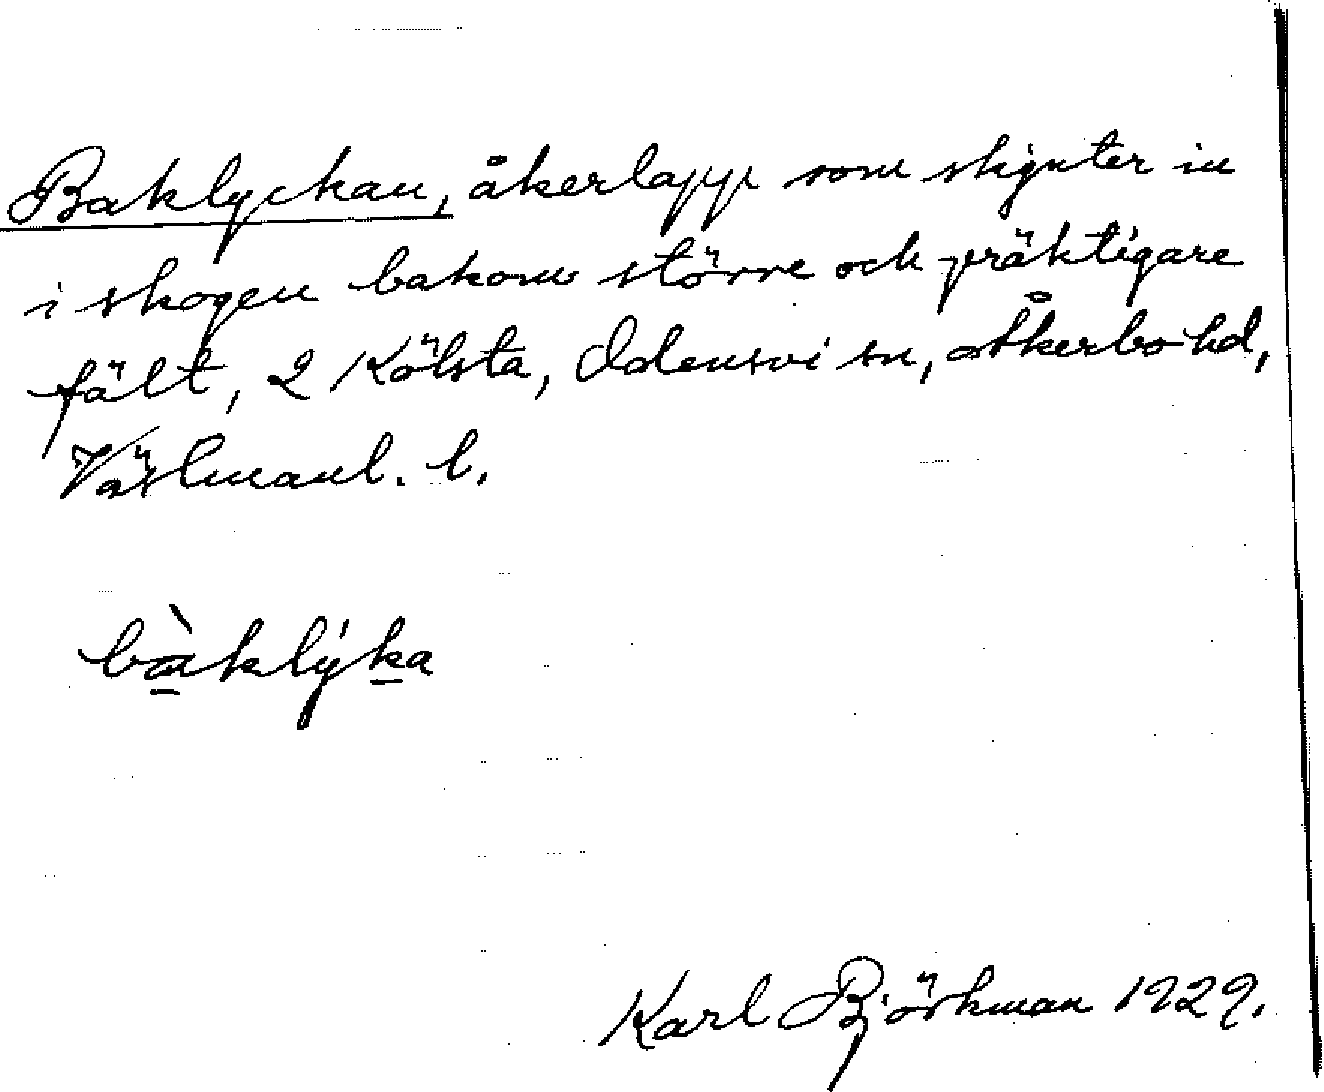 Baklyckan, åkerlapp som skjuter in
i skogen bakom större och präktigare
fält, 2 Kölsta, Odensvi sn, Åkerbo hd,
Västmanl. l.
bàklýka
Karl Björkman 1929.